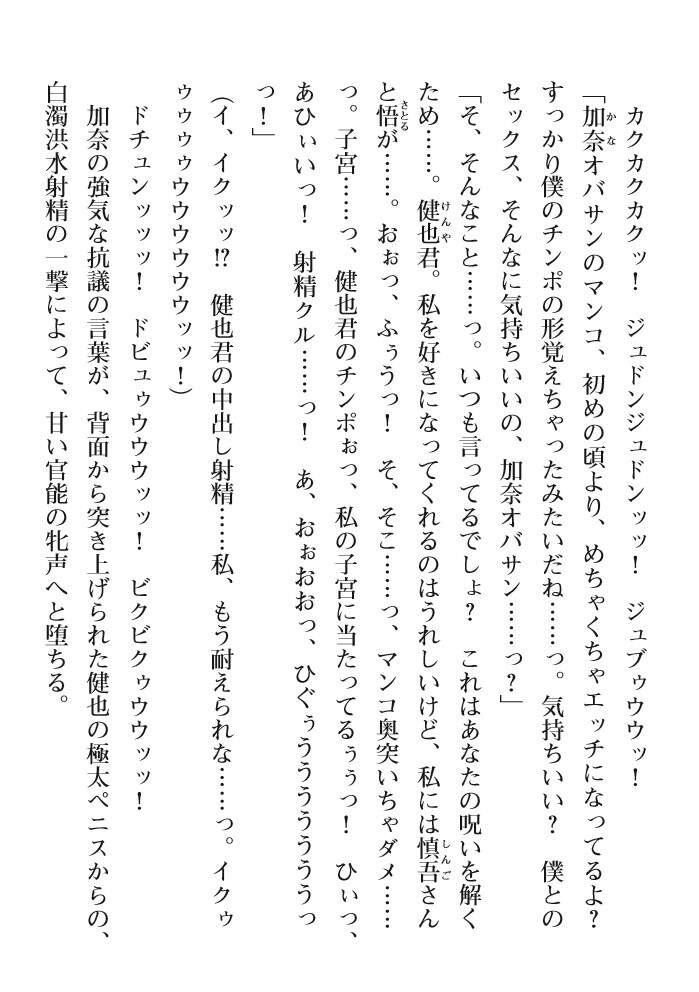 カクカクカクッ！　ジュドンジュドンッッ！　ジュブゥウウッ！
「加奈オバサンのマンコ、初めの頃より、めちゃくちゃエッチになってるよ？
すっかり僕のチンポの形覚えちゃったみたいだね……っ。気持ちいい？　僕との
セックス、そんなに気持ちいいの、加奈オバサン……っ？」
「そ、そんなこと……っ。いつも言ってるでしょ？　これはあなたの呪いを解く
ため……。健也君。私を好きになってくれるのはうれしいけど、私には慎吾さん
と悟が……。おぉっ、ふぅうっ！　そ、そこ……っ、マンコ奥突いちゃダメ……
っ。子宮……っ、健也君のチンポぉっ、私の子宮に当たってるぅぅっ！　ひぃっ、
あひぃいっ！　射精クル……っ！　あ、おぉおおっ、ひぐぅうううううううっ
っ！」
（イ、イクッッ!?　健也君の中出し射精……私、もう耐えられな……っ。イクゥ
ゥゥゥゥウウウウウウッッ！）
ドチュンッッッ！　ドビュゥウウウッッ！　ビクビクゥウウッッ！
加奈の強気な抗議の言葉が、背面から突き上げられた健也の極太ペニスからの、
白濁洪水射精の一撃によって、甘い官能の牝声へと堕ちる。